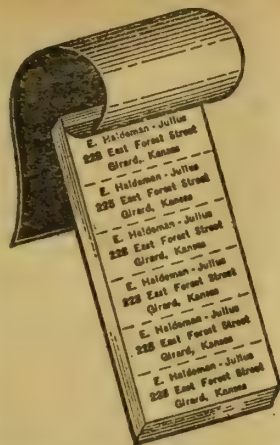 E. Haldeman - Julius
228 East Forest Street
Girard, Kansas
E. Haldeman - Julius
228 East Forest Street
Girard, Kansas
E. Haldeman - Julius
228 East Forest Street
Girard, Kansas
E. Haldeman - Julius
228 East Forest Street
Girard, Kansas
E. Haldeman - Julius
228 East Forest Street
Girard, Kansas
E. Haldeman - Julius
228 East Forest Street
Girard, Kansas